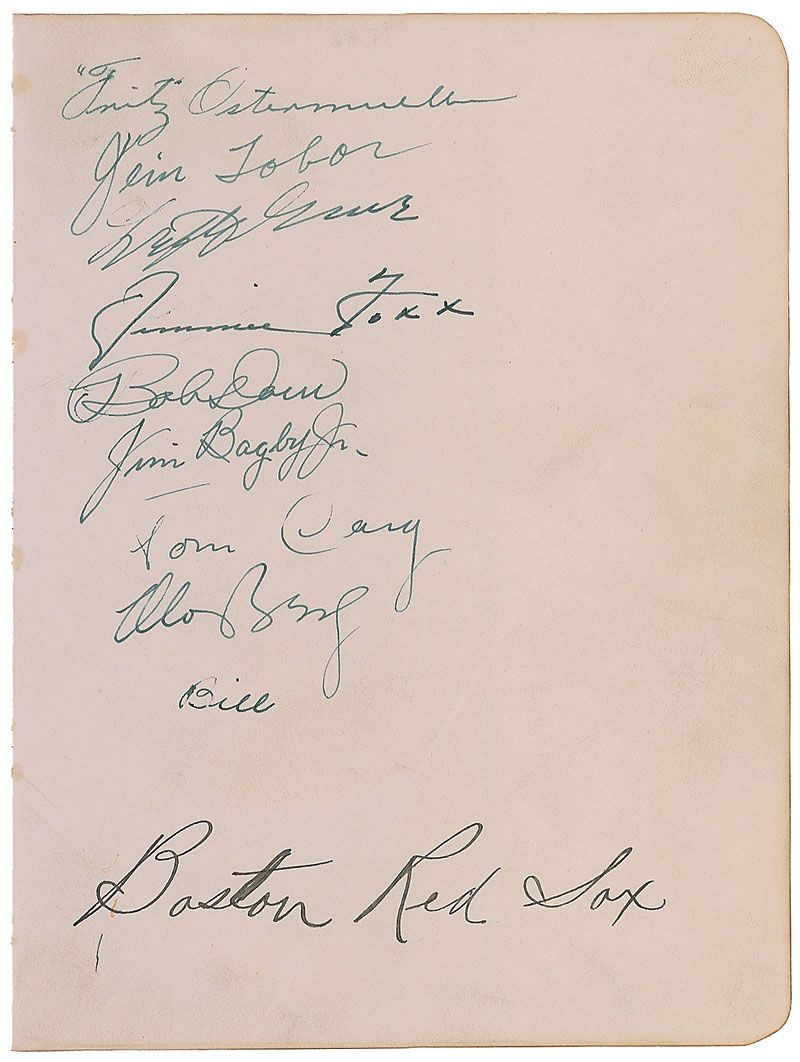 "Fritz" Ostermueller
Jim Tabor
Lefty Grove
Jimmie Foxx
Bob Doerr
Jim Bagby Jr.
Tom Carey
Moe Berg
Bill
Boston Red Sox